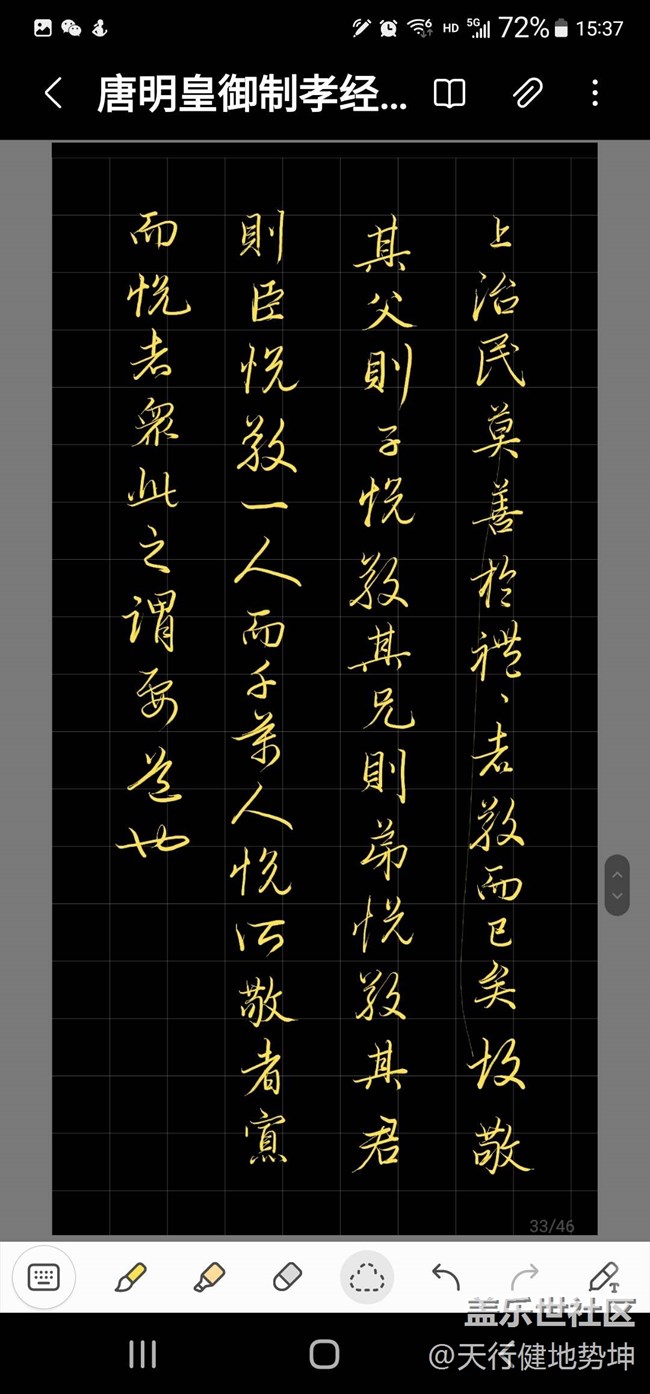 HD 5G 72% 15:37
唐明皇御制孝经...
上治民莫善於禮、者敬而已矣故敬
其父則子悦敬其兄則弟悦敬其君
則臣悦敬一人而千萬人悦所敬者寡
而悦者衆此之謂要道也
33/46
盖乐世社区
@天行健地势坤